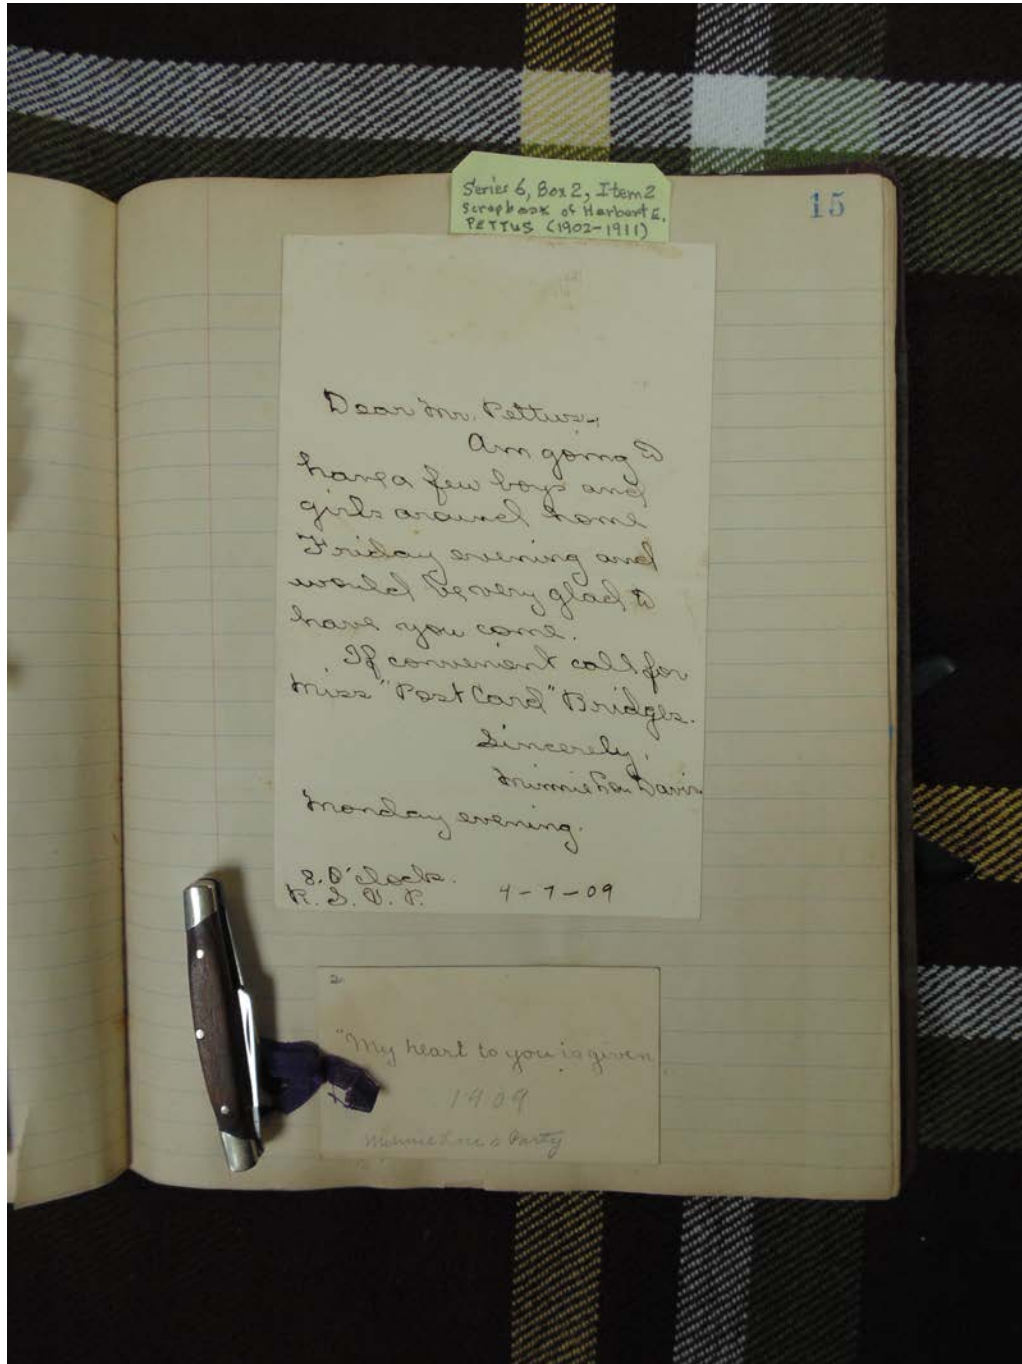 Series 6, Box 2, Item 2
Scrapbook of Harbert E.
PETTUS (1902-1911)
15
Dear Mr. Pettus:-
Am going to
have a few boys and
girls around home
Friday evening and
would be very glad to
have you come.
If convenient call for
Miss "Post Card" Bridges.
Sincerely,
Minnie Lou Davis
Monday evening.
8. O'clock.
R. S. V. P. 4-7-09
2
"My heart to you is given
1909
Minnie Lou's Party